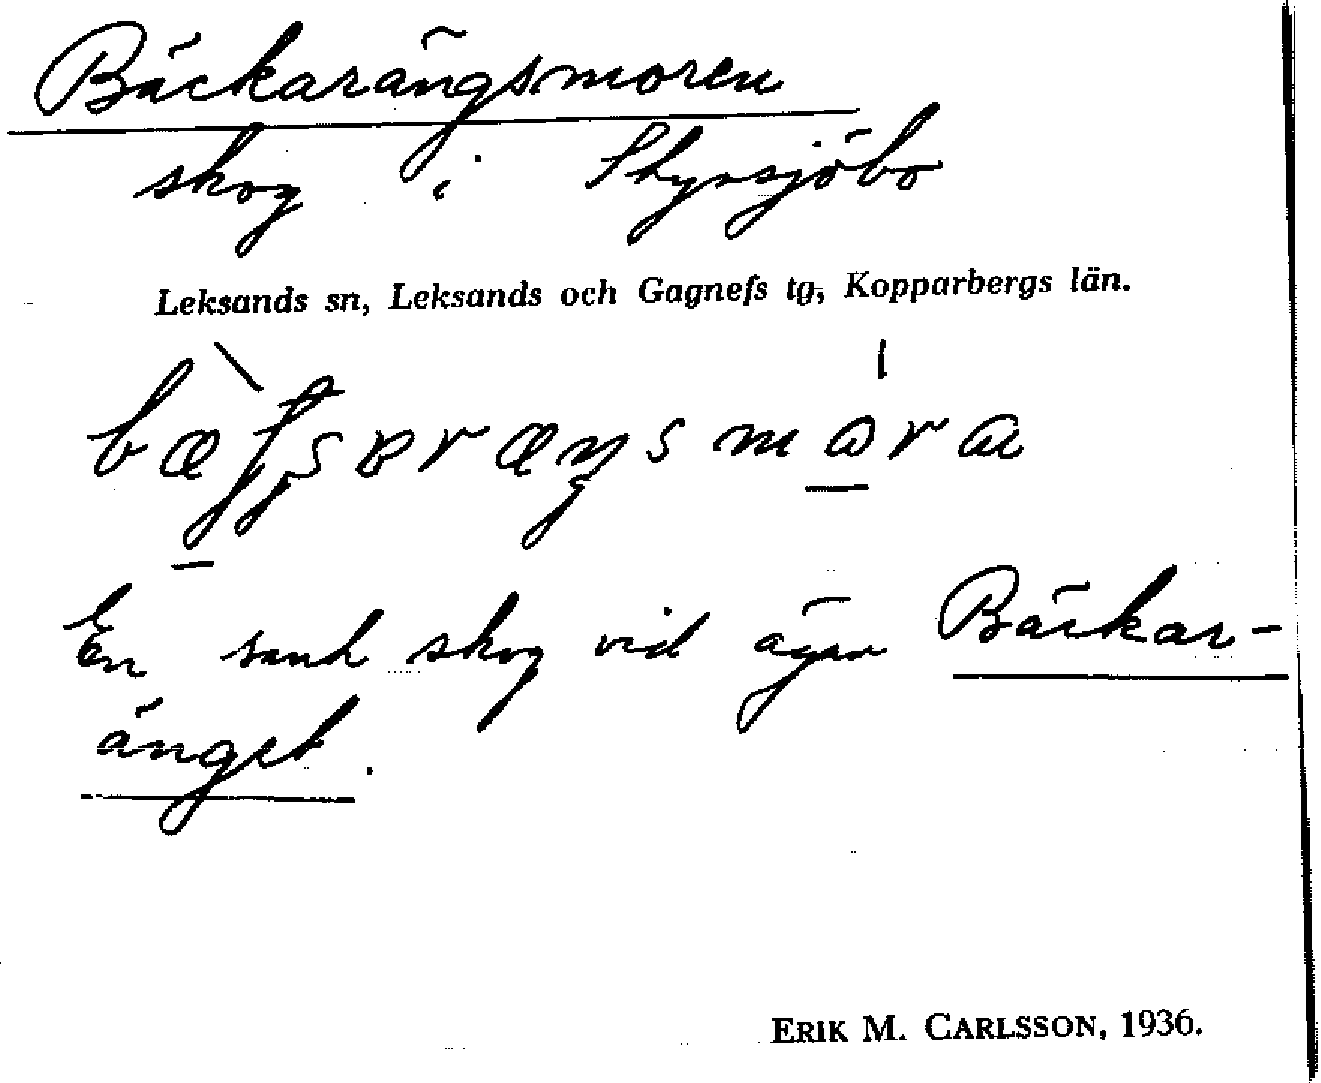 Bäckarängsmoren
skog i Styrsjöbo
Leksands sn, Leksands och Gagnefs tg, Kopparbergs län.
En sank skog vid ägan Bäckar-
änget.
ERIK M. CARLSSON, 1936.